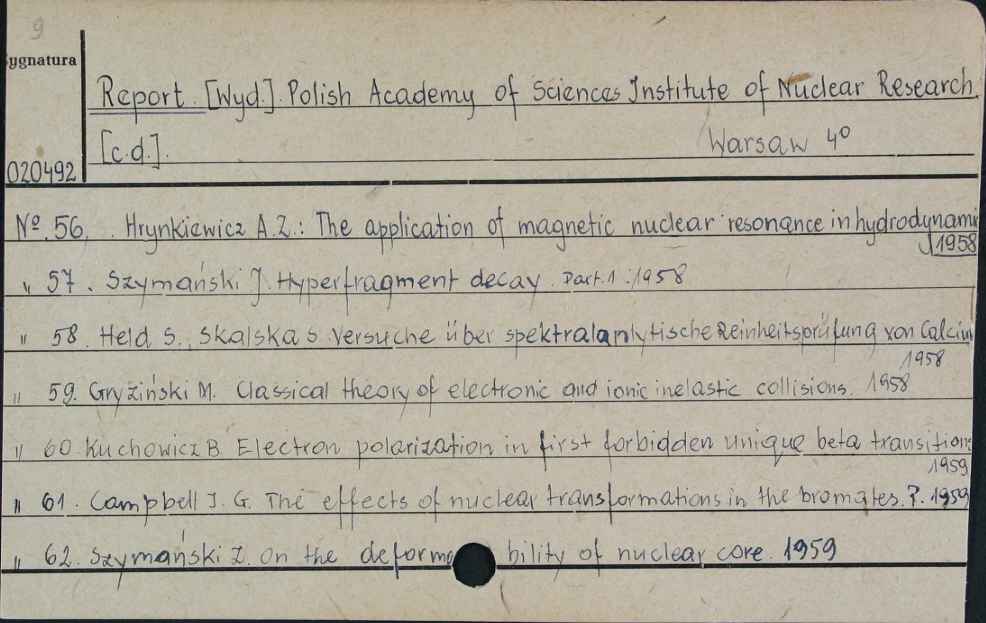 9
ygnatura
Report. [Wyd.]. Polish Academy of Sciences Institute of Nuclear Research.
[c.d.]. Warsaw 4º
020492
Nº. 56. Hrynkiewicz A.Z.: The application of magnetic nuclear resonance in hydrodynami
1958
" 57. Szymański J. Hyperfragment decay. Part. 1. 1958
" 58. Held S., Skalska S. Versuche über spektralanlytische Reinheitsprüfung von Calcium
1958
" 59. Gryziński M. Classical theory of electronic and ionic inelastic collisions. 1958
" 60 Kuchowicz B. Electron polarization in first forbidden unique beta transitions
1959
" 61. Campbell I. G. The effects of nuclear transformations in the bromates. P. 1959
" 62. Szymański Z. On the deforma bility of nuclear core. 1959